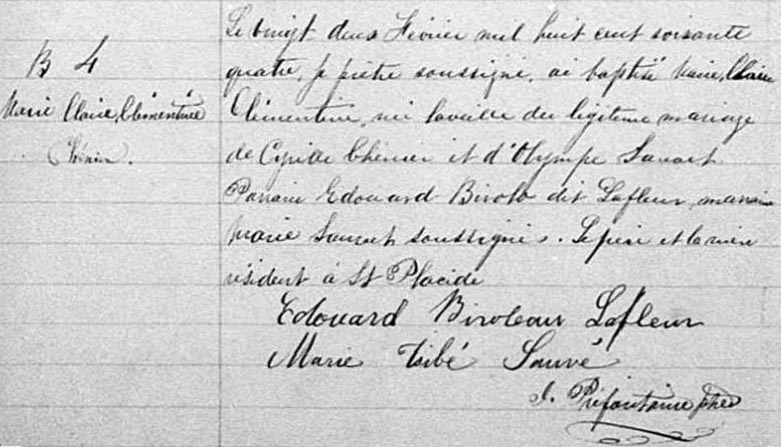 B 4
Marie Claire, Clémentine
Chénier.
Le vingt deux Février mil huit cent soixante
quatre, je prêtre soussigné, ai baptisé Marie, Claire
Clémentine, née la veille du légitime mariage
de Cyrille Chénier et d'Olympe
Parrain Edouard Birolo dit Lafleur, marraine
Marie soussignés. Le père et la mère
résident à St Placide
Edouard Biroleau Lafleur
Marie Sauvé
Préfontaine ptre